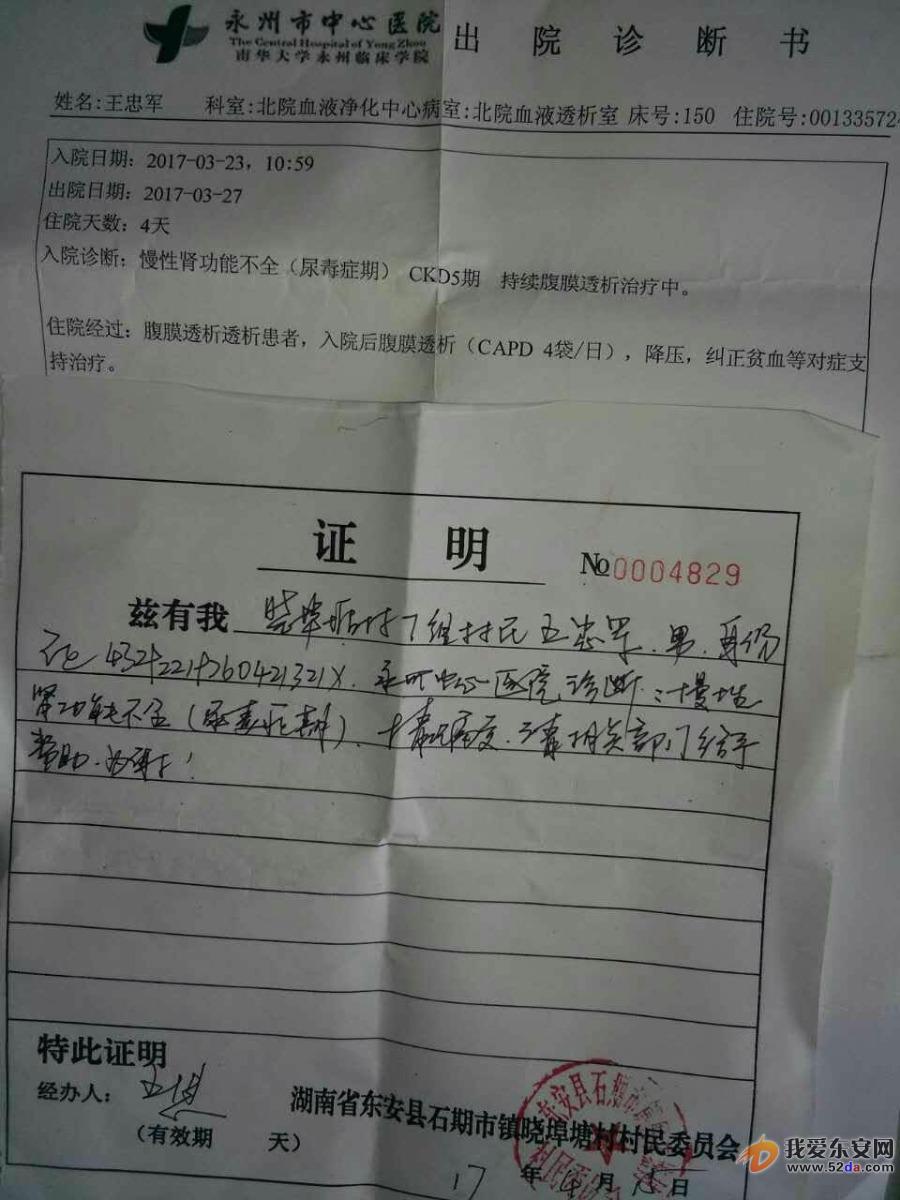 永州市中心医院
The Central Hospital of Yong Zhou
南华大学永州临床学院
出院诊断书
姓名:王忠军 科室:北院血液净化中心病室:北院血液透析室 床号:150 住院号:00133572
入院日期: 2017-03-23, 10:59
出院日期: 2017-03-27
住院天数: 4天
入院诊断: 慢性肾功能不全(尿毒症期) CKD5期 持续腹膜透析治疗中。
住院经过: 腹膜透析透析患者,入院后腹膜透析(CAPD 4袋/日),降压,纠正贫血等对症支
持治疗。
证 明
№0004829
兹有我 晓埠塘村 组村民王忠军、男、身份
永州中心医院诊断:慢性
肾功能不全(尿毒症期)、请相关部门给予
帮助
特此证明
经办人:
湖南省东安县石期市镇晓埠塘村村民委员会
(有效期 天)
17 年 月 日
我爱东安网
www.52da.com